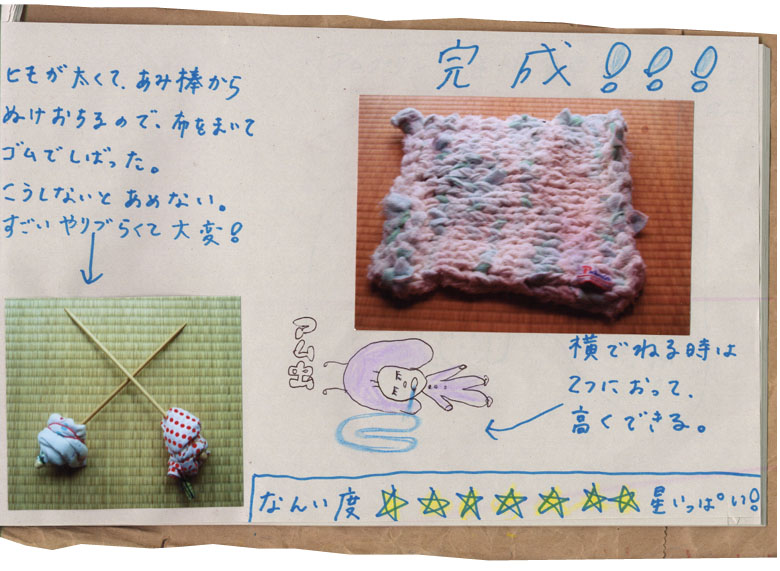 ヒモが太くて、あみ棒から
ぬけおちるので、布をまいて
ゴムでしばった。
こうしないとあめない。
すごいやりづらくて大変!
完成!!!
横でねる時は
2つにおって、
高くできる。
なんい度 ☆☆☆☆☆☆☆ 星いっぱい!